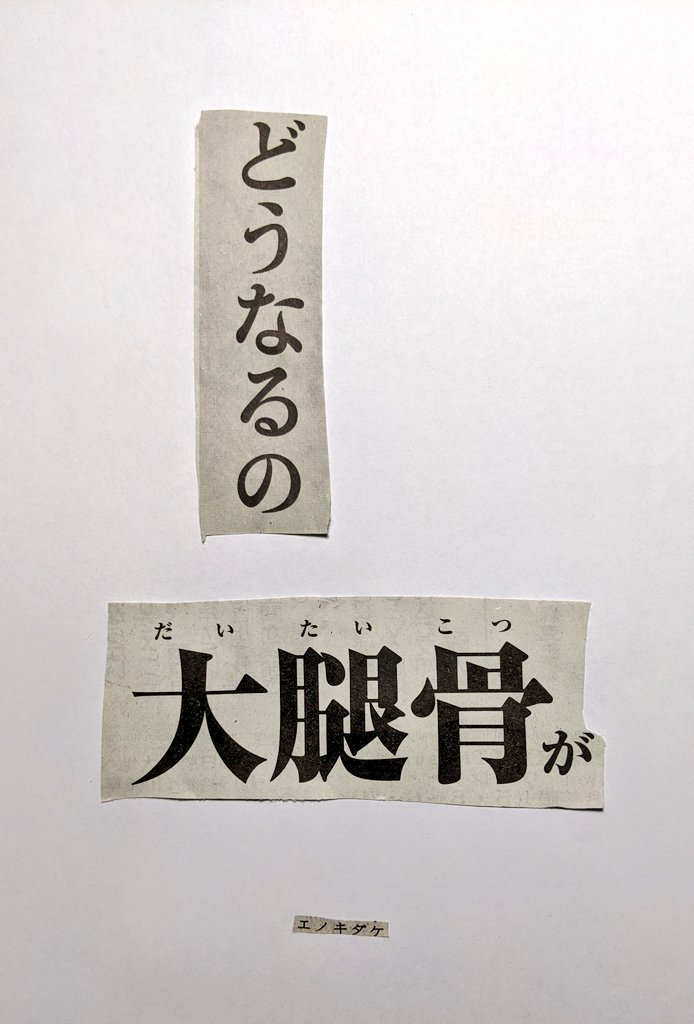 どうなるの
だいたいこつ
大腿骨が
エノキダケ